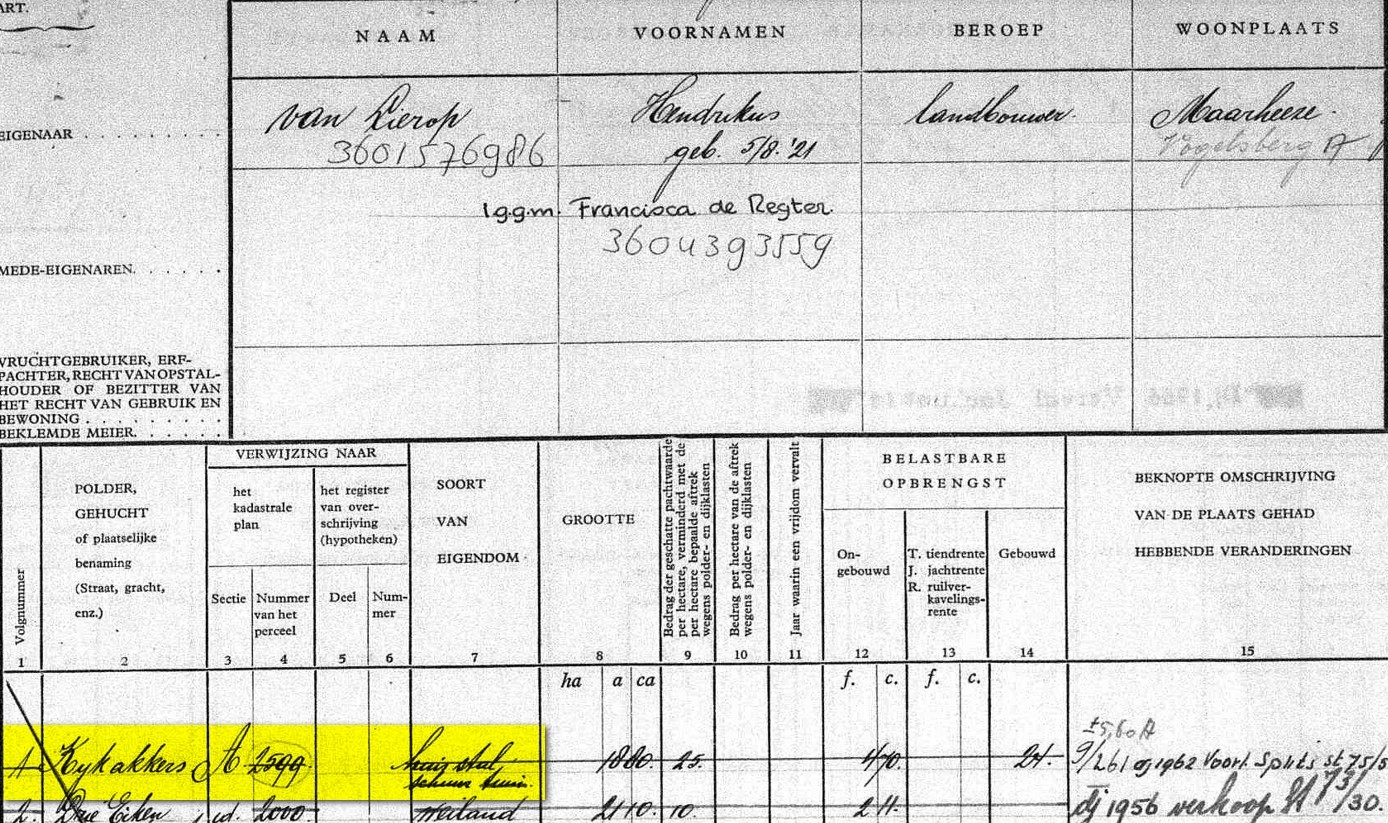 ART.
NAAM VOORNAMEN BEROEP WOONPLAATS
EIGENAAR . . . . . . . . . . van Lierop Hendrikus landbouwer. Maarheeze.
3601576986 geb. 5/8.'21 Vogelsberg A
l.g.g.m. Francisca de Regter.
3604393559
MEDE-EIGENAREN. . . . . .
VRUCHTGEBRUIKER, ERF-
PACHTER, RECHT VAN OPSTAL-
HOUDER OF BEZITTER VAN
HET RECHT VAN GEBRUIK EN
BEWONING . . . . . . . .
BEKLEMDE MEIER. . . . . .
Volgnummer
1
POLDER,
GEHUCHT
of plaatselijke
benaming
(Straat, gracht,
enz.)
2
VERWIJZING NAAR
het
kadastrale
plan
Sectie
3
Nummer
van het
perceel
4
het register
van over-
schrijving
(hypotheken)
Deel
5
Num-
mer
6
SOORT
VAN
EIGENDOM
7
GROOTTE
8
Bedrag der geschatte pachtwaarde
per hectare, verminderd met de
per hectare bepaalde aftrek
wegens polder- en dijklasten
9
Bedrag per hectare van de aftrek
wegens polder- en dijklasten
10
Jaar waarin een vrijdom vervalt
11
BELASTBARE
OPBRENGST
On-
gebouwd
12
T. tiendrente
J. jachtrente
R. ruilver-
kavelings-
rente
13
Gebouwd
14
BEKNOPTE OMSCHRIJVING
VAN DE PLAATS GEHAD
HEBBENDE VERANDERINGEN
15
ha a ca f. c. f. c.
±5,60 A
1 Kykakkers A 2599 huis stal, 18 80 25. 4 70. 24. 9/261 dj 1962 Voorl. Splits st 75/5
schuur tuin.
2. Drie Eiken id. 2000. weiland 21 10. 10. 2 11. dj 1956 verkoop St 73/30.